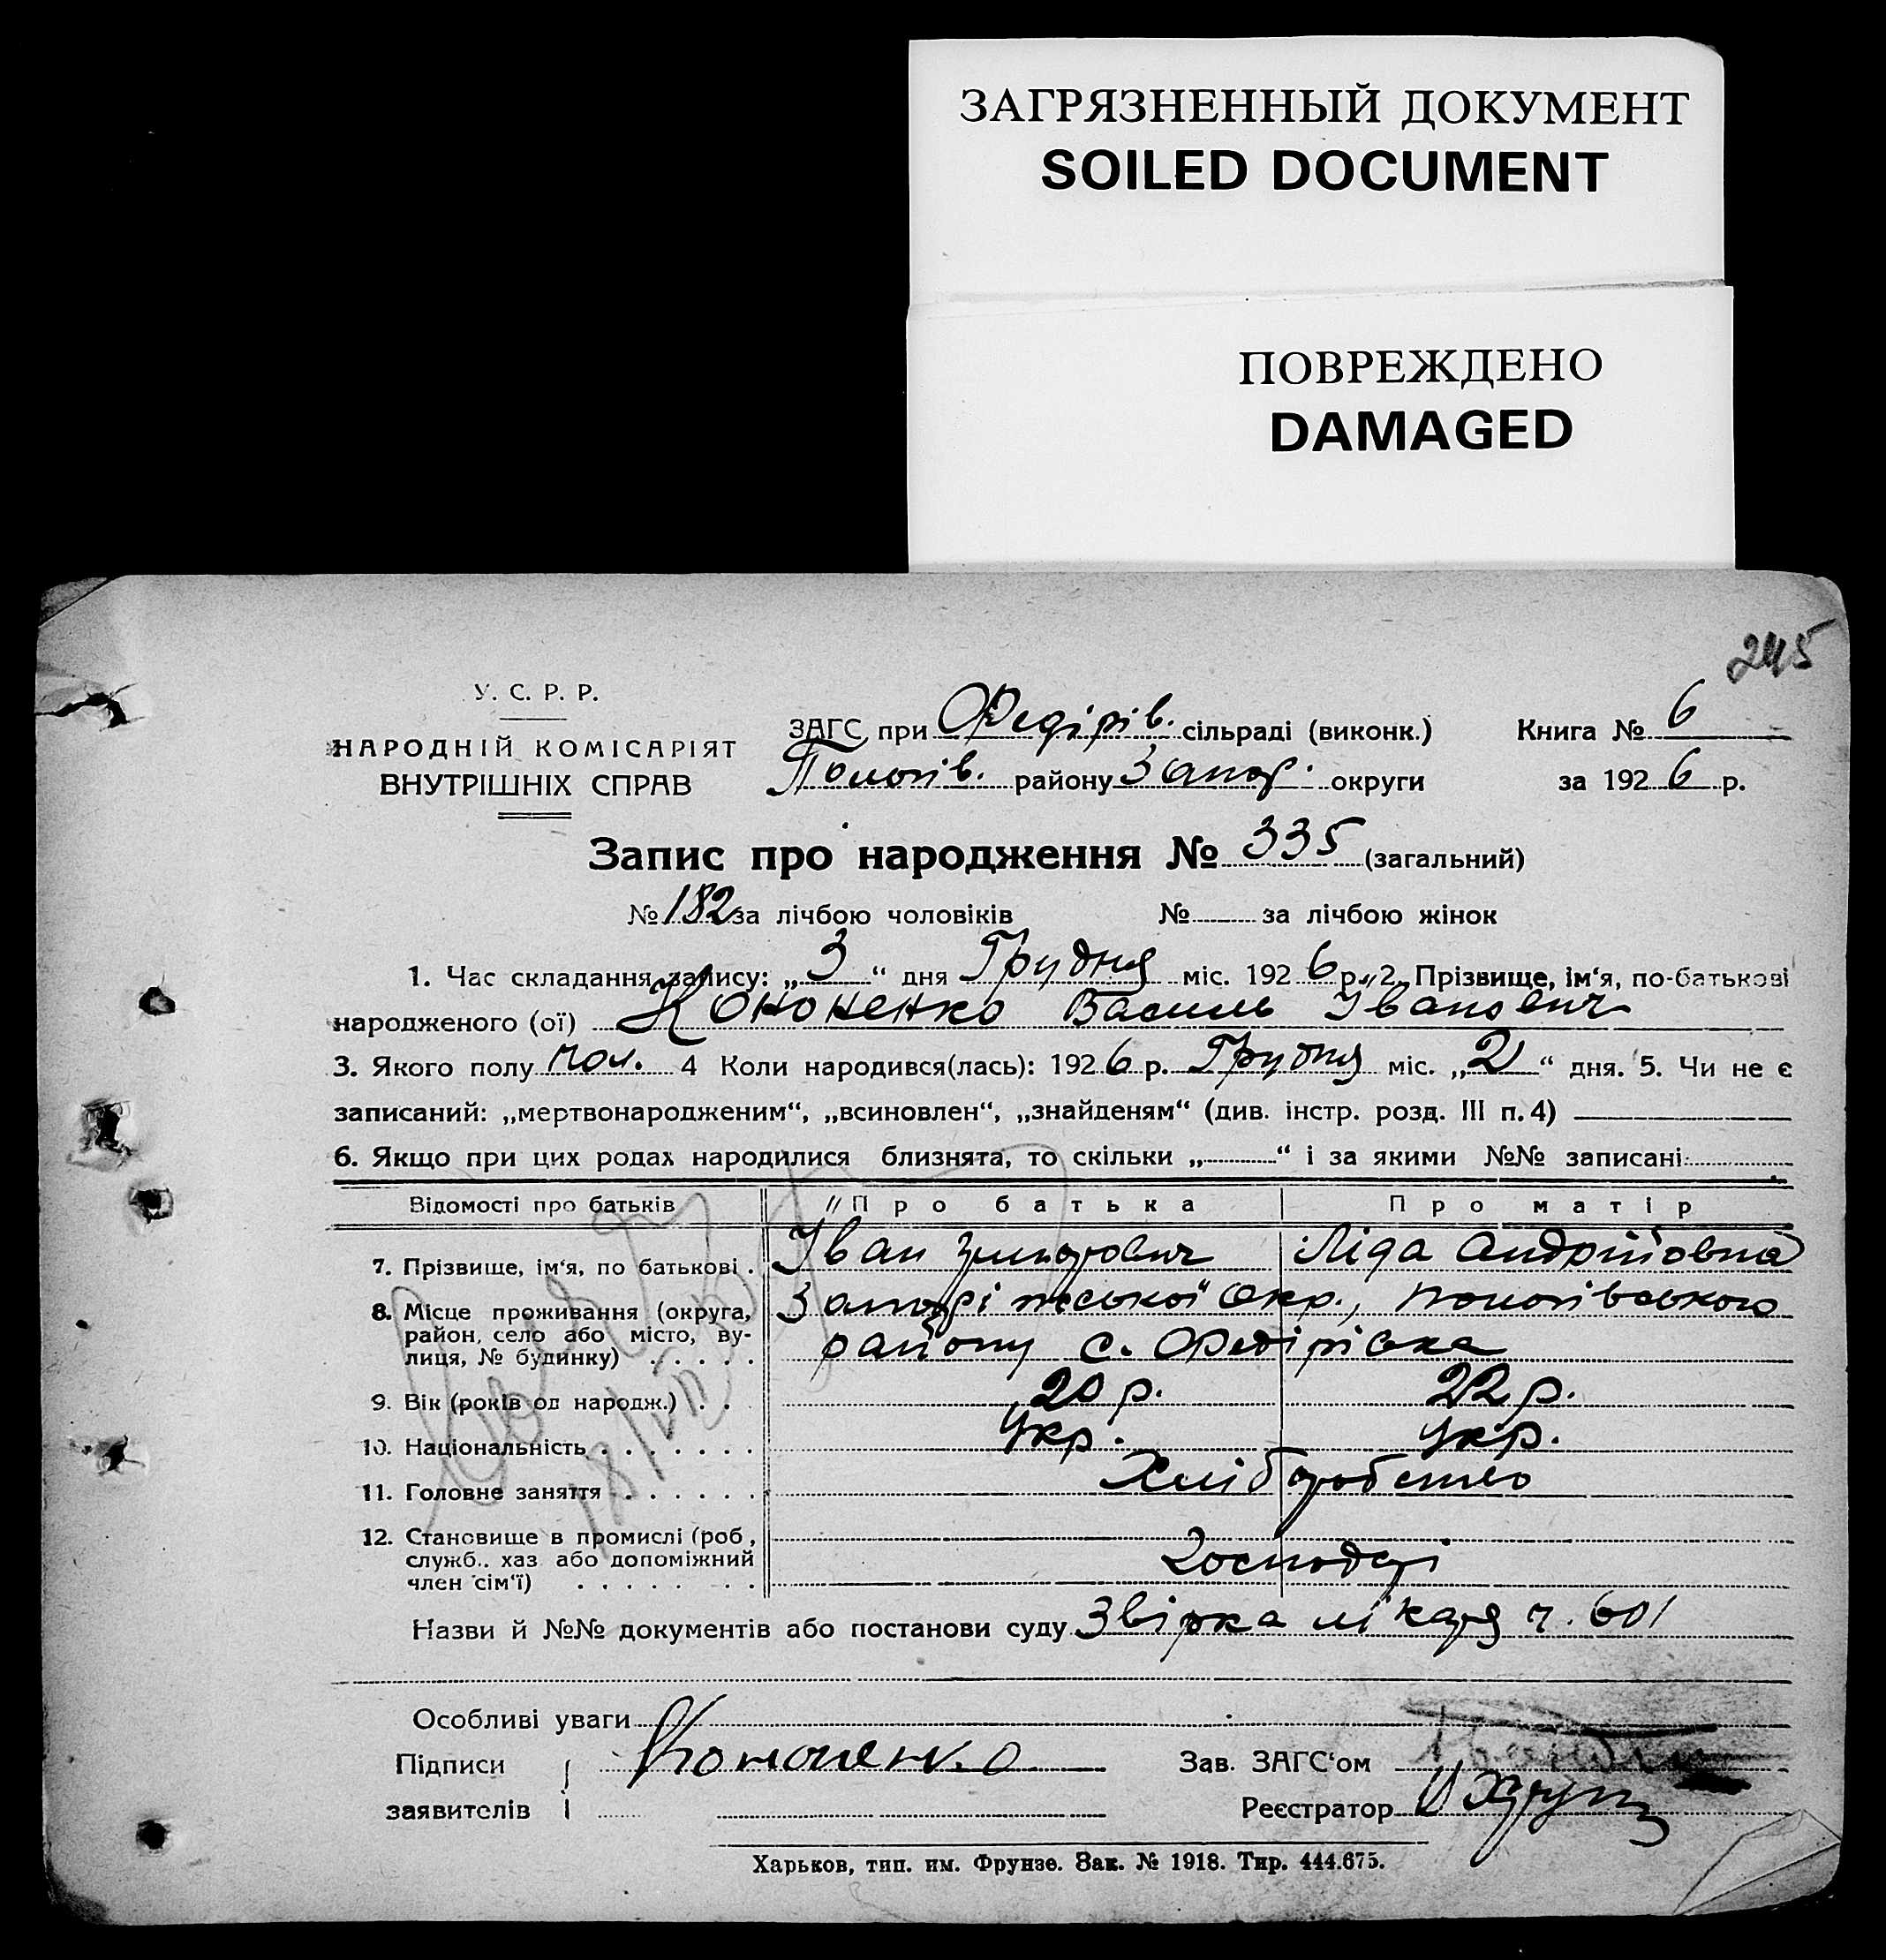 ЗАГРЯЗНЕННЫЙ ДОКУМЕНТ
SOILED DOCUMENT
ПОВРЕЖДЕНО
DAMAGED
245
У. С. Р. Р.
НАРОДНІЙ КОМІСАРІЯТ
ВНУТРІШНІХ СПРАВ
ЗАГС при Федірів. сільраді (виконк.) Книга № 6
Пологів. району Запор. округи за 1926 р.
Запис про народження № 335 (загальний)
№ 182 за лічбою чоловіків № за лічбою жінок
1. Час складання запису: „3“ дня Грудня міс. 1926 р. 2. Прізвище, ім‘я, по-батькові
народженого (ої) Кононенко Василь Іванович
3. Якого полу чол. 4 Коли народився(лась): 1926 р. Грудня міс. „2“ дня. 5. Чи не є
записаний: „мертвонародженим“, „всиновлен“, „знайденям“ (див. інстр. розд. III п. 4)
6. Якщо при цих родах народилися близнята, то скільки „ “ і за якими №№ записані:
Відомості про батьків Про батька Про матір
7. Прізвище, ім‘я, по батькові . Іван Григорович Ліда Андріївна
8. Місце проживання (округа, район, село або місто, вулиця, № будинку) . . . . . Запорізької Окр., Пологівського
району с. Федірівка
9. Вік (років од народж.) . . 20 р. 22 р.
10. Національність . . . . . . . Укр. Укр.
11. Головне заняття . . . . . . Хліборобство
12. Становище в промислі (роб,
служб.. хаз або допоміжний
член сім‘ї) . . . . . . . Господарі
Назви й №№ документів або постанови суду Звірка лікаря ч. 601
Особливі уваги
Підписи Кононенко Зав. ЗАГС‘ом
заявителів Реєстратор
Харьков, тип. им. Фрунзе. Зак. № 1918. Тир. 444.675.